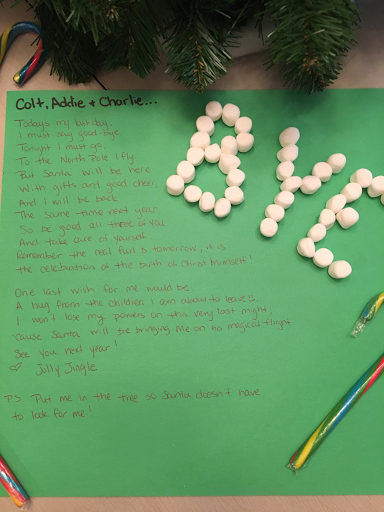 Colt, Addie + Charlie...
Todays my last day,
I must say good-bye.
Tonight I must go,
To the North Pole I fly.
But Santa will be here
With gifts and good cheer,
And I will be back
The same time next year.
So be good all three of you
And take care of yourself.
Remember the real fun is tomorrow, it is
the celebration of the birth of Christ himself!
One last wish for me would be
A hug from the children I am about to leave.
I won't lose my powers on this very last night,
'cause Santa will be bringing me on his magical flight.
See you next year!
♡ Jolly Jingle
PS Put me in the tree so Santa doesn't have
to look for me!
Bye